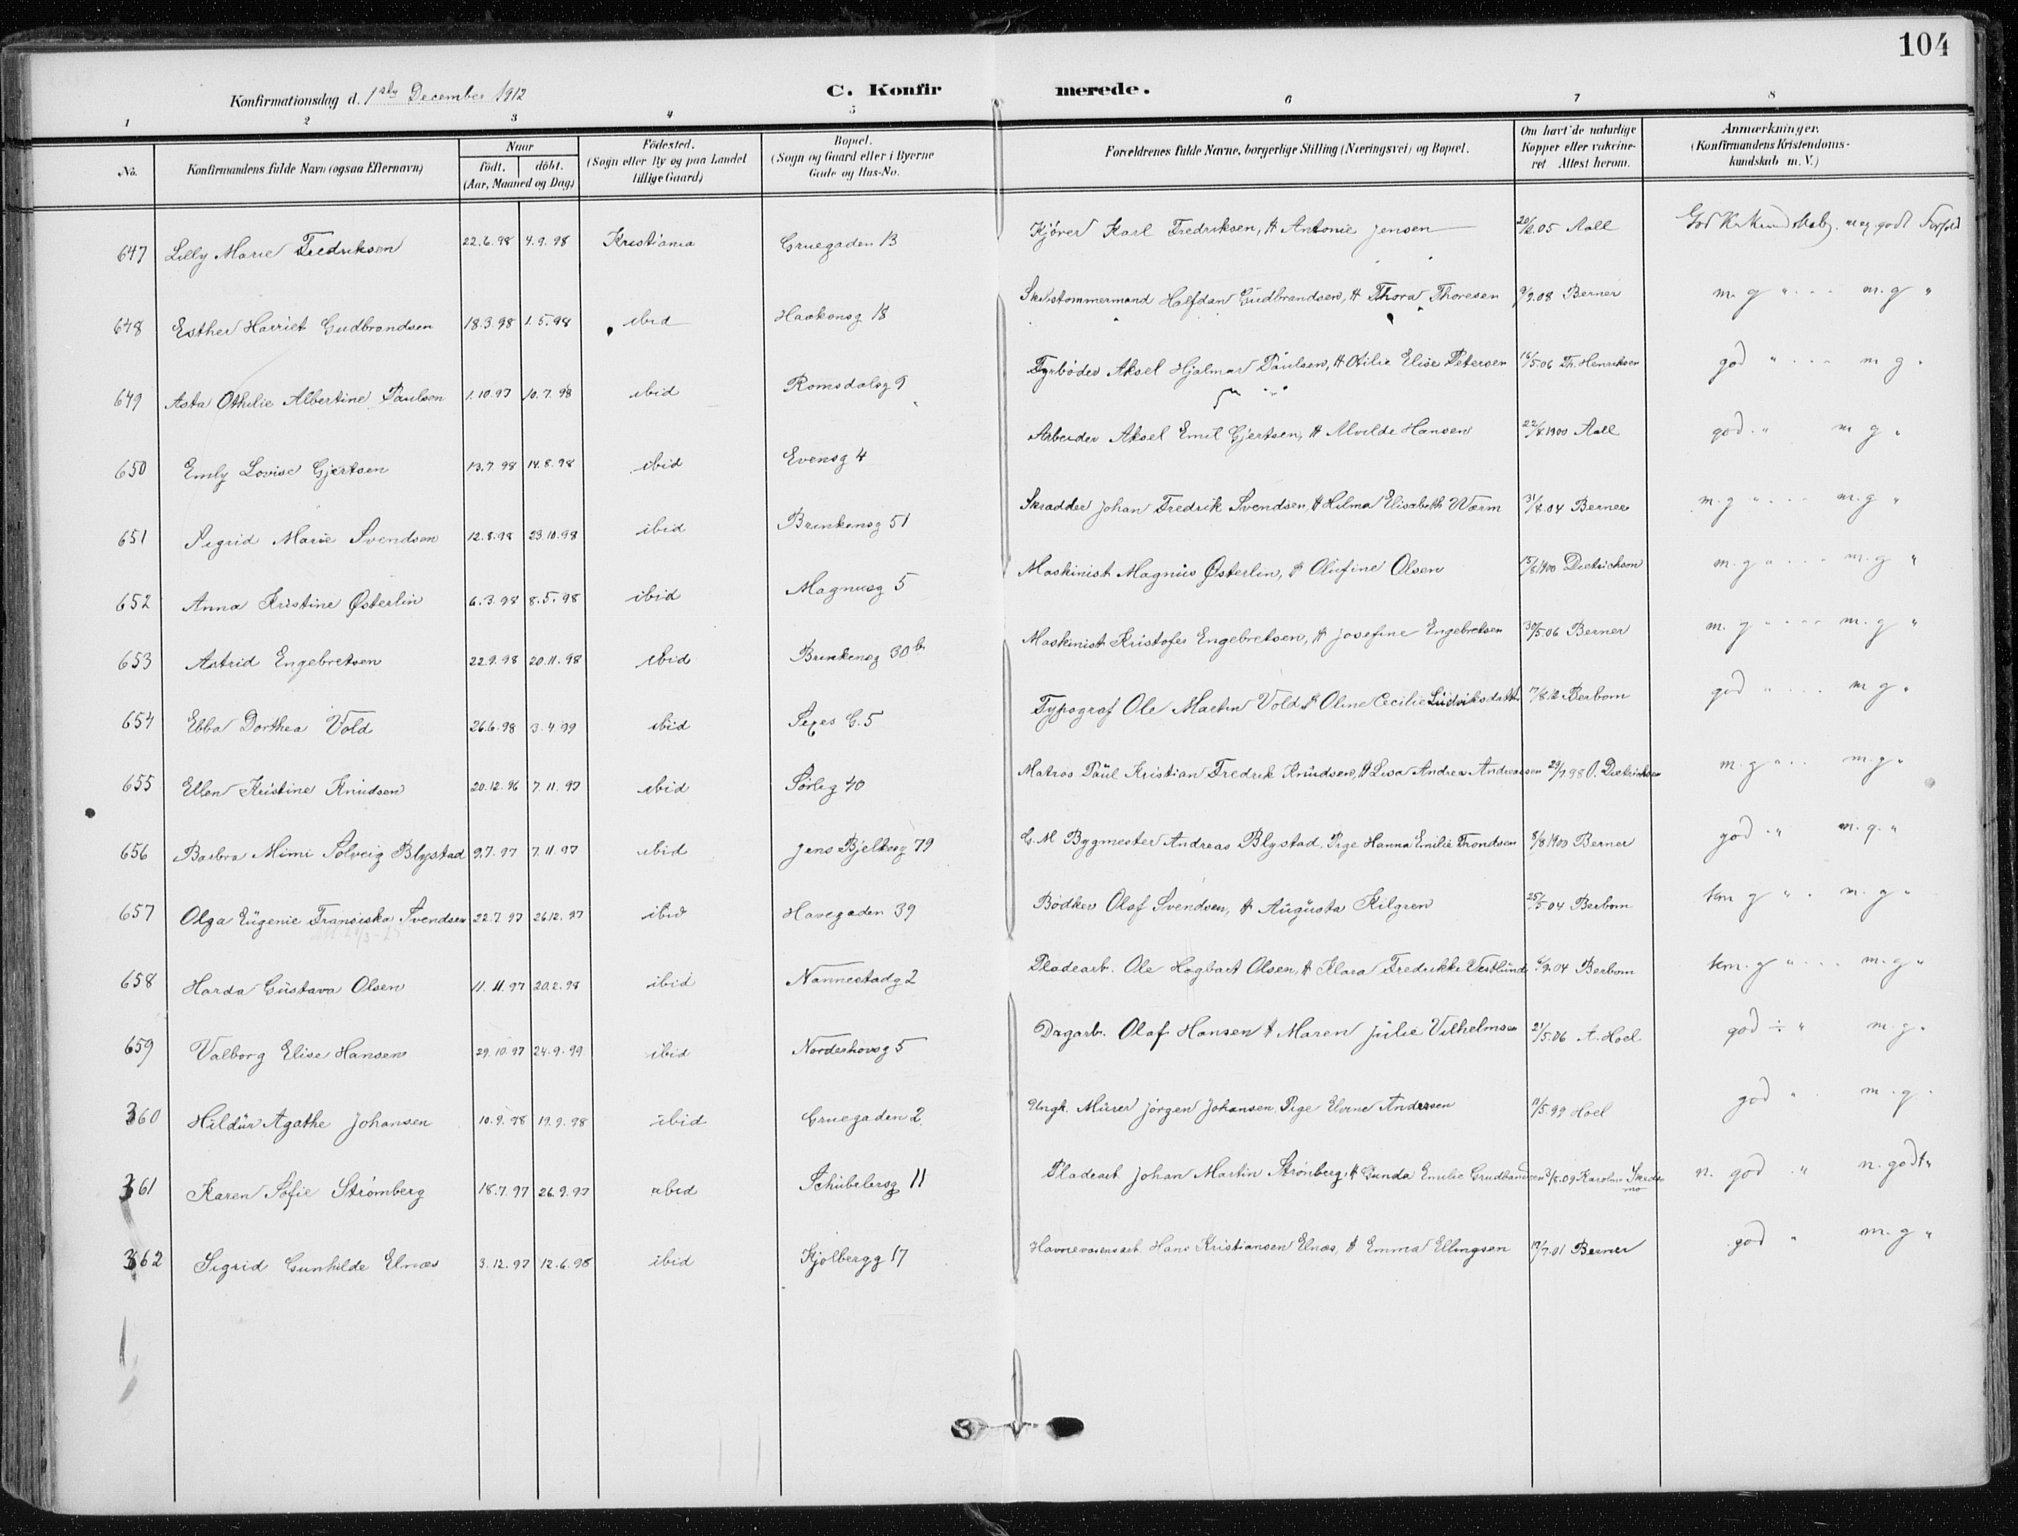 104
Konfirmationsdag d. 1ste December 1912
C. Konfir merede.
1 2 3 4 5 6 7 8
No. Konfirmandens fulde Navn (ogsaa Efternavn) Naar Födt. döbt. (Aar, Maaned og Dag) Födested. (Sogn eller By og paa Landet tillige Gaard) Bopæl. (Sogn og Gaard eller i Byerne Gade og Hus-No. Forældrenes fulde Navne, borgerlige Stilling (Næringsvei) og Bopæl. Om havt de naturlige Kopper eller vakcineret Attest herom. Anmærkninger. (Konfirmandens Kristendomskundskab m. V.)
647 Lilly Marie Fredriksen 22.6.98 4.9.98 Kristiania Gruegaden 13 Kjører Karl Fredriksen, H Antonie Jensen 20/2.05 Aall God Kr Kundskab. meg. godt Forhold
648 Esther Harriet Gudbrandsen 18.3.98 1.5.98 ibid Haakonsg 18 Skibstømmermand Halfdan Gudbrandsen, H Thora Thoresen 9/9.08 Berner m. g " m. g "
649 Asta Othilie Albertine Paulson 1.10.97 10.7.98 ibid Romsdalsg 9 Fyrbøder Aksel Hjalmar Paulsen, H Otilie Elise Petersen 16/5.06 Th. Henriksen god " m g "
650 Emly Lovise Gjertsen 13.7.98 14.8.98 ibid Evensg 4 Arbeider Aksel Emil Gjertsen, H Alvilde Hansen 22/8 1900 Aall god " m g "
651 Sigrid Marie Svendsen 12.8.98 23.10.98 ibid Brinkensg 51 Skrædder Johan Fredrik Svendsen, H Hilma Elisabeth Wærm 31/8.04 Berner m. g " m. g "
652 Anna Kristine Østerlin 6.3.98 8.5.98 ibid Magnusg 5 Maskinist Magnus Østerlin, H Olufine Olsen 15/8 1900 Dietrichson m. g " m. g "
653 Astrid Engebretsen 22.9.98 20.11.98 ibid Brinkensg 30b Maskinist Kristofer Engebretsen, H Josefine Engebretsen 30/5.06 Berner m. g " m. g "
654 Ebba Dorthea Vold 26.6.98 3.4.99 ibid Sexes G. 5 Typograf Ole Martin Vold H Oline Cecilie Ludviksdatter 17/8.12 Berbom god " m g "
655 Ellen Kristine Knudsen 20.12.96 7.11.97 ibid Sørlig 40 Matros Paul Kristian Fredrik Knudsen, H Lisa Andrea Andreassen 29/7.98 O. Dietrichsen m. g " m. g "
656 Barbra Mimi Solveig Blystad 9.7.97 7.11.97 ibid Jens Bjelkesg 79 G. M Bygmester Andreas Blystad, Pige Hanna Emilie Trondsen 8/8 1900 Berner god " m. g. "
657 Olga Eugenie Fransiska Svendsen 22.7.97 26.12.97 ibid Havegaden 39 Bødker Olaf Svendsen, H Augusta Kilgren 25/5.04 Berbom tem g " m. g "
658 Harda Gustava Olsen 11.11.97 20.2.98 ibid Nannestadg 2 Pladearb. Ole Hagbart Olsen, H Klara Fredrikke Vestlund 6/9.04 Berbom tem. g " m. g "
659 Valborg Elise Hansen 29.10.97 24.9.99 ibid Norderhovsg 5 Dagarb. Olaf Hansen H Maren Julie Vilhelmsen 21/5.06 A. Hoel god ÷ " m. g "
360 Hildur Agathe Johansen 10.9.98 19.9.98 ibid Gruegaden 2 Ungk. Murer Jørgen Johansen, Pige Elvine Andersen 11/5.99 Hoel god " m. g.
361 Karen Sofie Strømberg 18.7.97 26.9.97 ibid Schübelersg 11 Pladearb Johan Martin Strønberg, H Gunda Emilie Grudbandsen 3/8.09 Karoline Skredsmo n. god " n. godt "
362 Sigrid Gunhilde Elnæs 3.12.97 12.6.98 ibid Kjølbergg 17 Havnevæsensarb. Hans Kristiansen Elnæs, H Emma Ellingsen 19/7.01 Berner god " m. g "